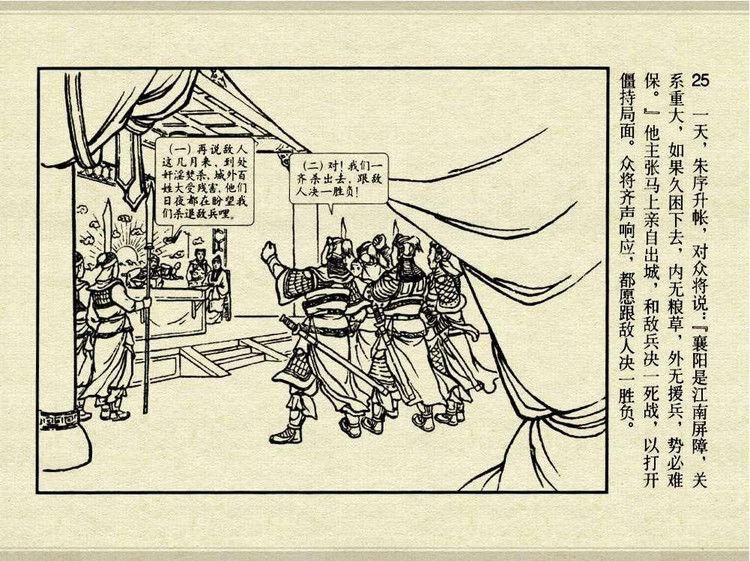 25 一天，朱序升帐，对众将说：『襄阳是江南屏障，关
系重大，如果久困下去，内无粮草，外无援兵，势必难
保。』他主张马上亲自出城，和敌兵决一死战，以打开
僵持局面。众将齐声响应，都愿跟敌人决一胜负。
（一）再说敌人
这几月来，到处
奸淫焚杀，城外百
姓大受残害，他们
日夜都在盼望我
们杀退敌兵哩。
（二）对！我们一
齐杀出去，跟敌
人决一胜负！